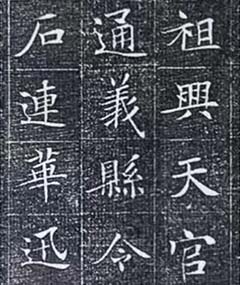 祖興天官
通義縣令
石連華迅